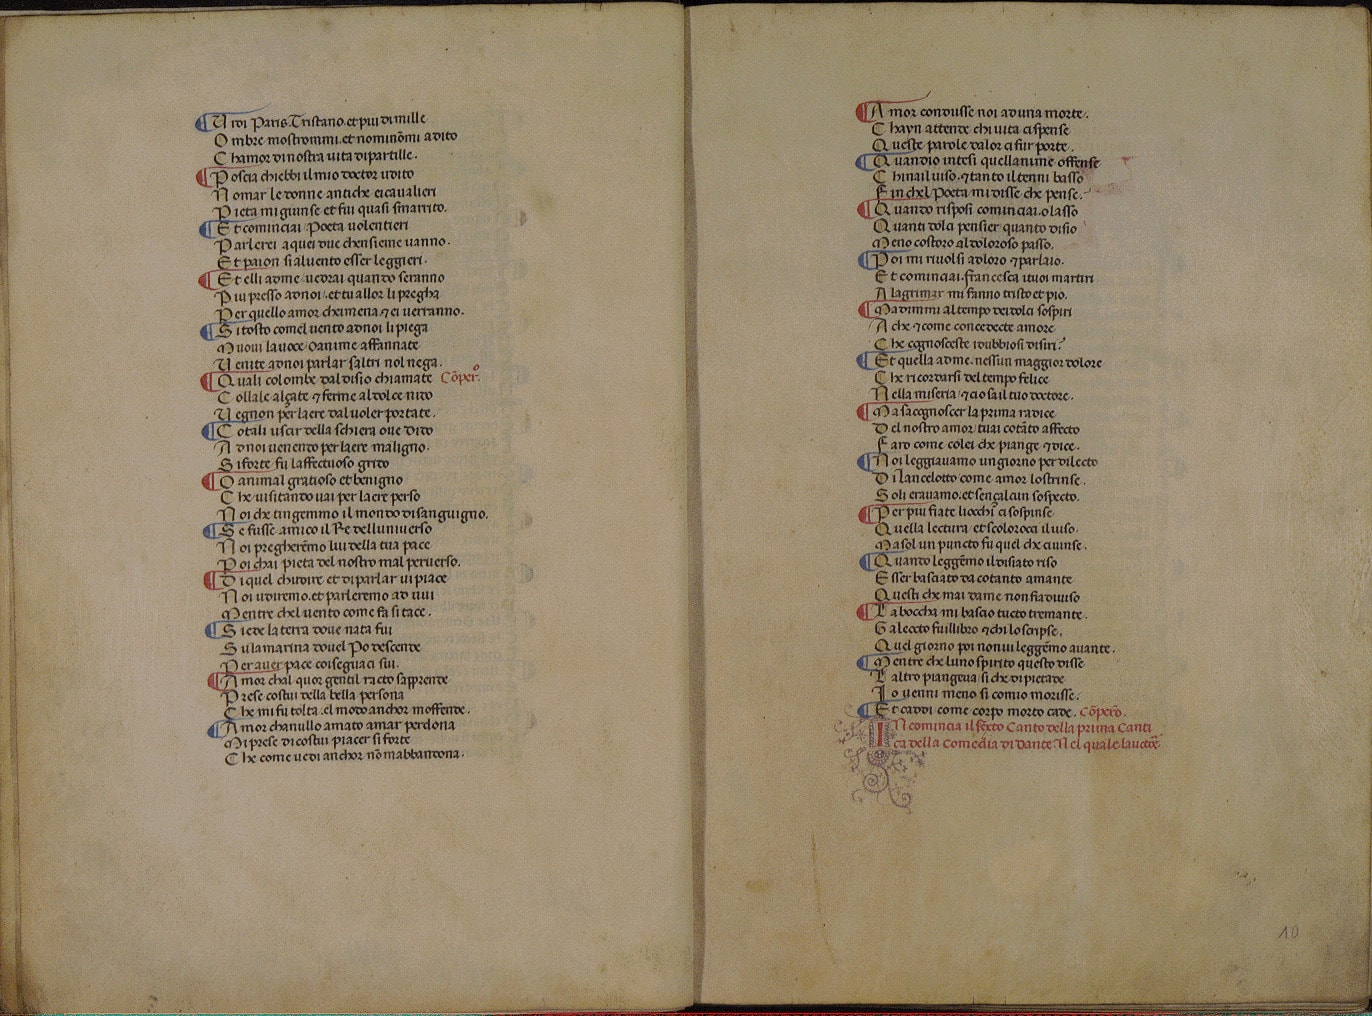 U idi Paris. Tristano. et piu di mille
O mbre mostrommi. et nominōmi a dito
C hamor di nostra uita dipartille.
P oscia chiebbi il mio doctor udito
N omar le donne antiche ei caualieri
P ieta mi giunse et fui quasi smarrito.
E t cominciai. Poeta uolentieri
P arlerei a quei due chensieme uanno.
E t paion si al uento esser leggieri.
E t elli ad me. uedrai quando seranno
P iu presso ad noi. et tu allor li pregha
P er quello amor chei mena. ⁊ ei uerranno.
S i tosto comel uento ad noi li piega
M uoui la uoce. o anime affannate
U enite ad noi parlar saltri nol nega.
Q uali colombe dal disio chiamate Cōper̄.
C ollale alçate ⁊ ferme al dolce nido
U egnon per laere dal uoler portate.
C otali uscir della schiera oue dido
A d noi uenendo per laere maligno.
S i forte fu laffectuoso grido
O animal gratioso et benigno
C he uisitando uai per laere perso
N oi che tingemmo il mondo di sanguigno.
S e fusse amico il Re delluniuerso
N oi pregheremo lui della tua pace
P oi chai pieta del nostro mal peruerso.
D i quel chudire et di parlar ui piace
N oi udiremo. et parleremo ad uui
M entre chel uento come fa si tace.
S iede la terra doue nata fui
S u la marina douel Po descende
P er auer pace coi seguaci sui.
A mor chal quor gentil racto sapprende
P rese costui della bella persona
C he mi fu tolta. el modo anchor moffende.
A mor chanullo amato amar perdona
M i prese di costui piacer si forte
C he come uedi anchor nō mabbandona.
A mor condusse noi ad una morte.
C hayn attende chi uita ci spense
Q ueste parole da lor ci fur porte.
Q uandio intesi quellanime offense
C hinai l uiso. ⁊ tanto il tenni basso
F in chel Poeta mi disse che pense.
Q uando risposi cominciai. o lasso
Q uanti dolci pensier quanto disio
M eno costoro al doloroso passo.
P oi mi riuolsi ad loro ⁊ parlaio.
E t cominciai. francesca i tuoi martiri
A lagrimar mi fanno tristo et pio.
M a dimmi al tempo dei dolci sospiri
A che ⁊ come concedecte amore
C he cognosceste i dubbiosi disiri?
E t quella ad me. nessun maggior dolore
C he ricordarsi del tempo felice
N ella miseria. ⁊ cio sa il tuo doctore.
M a sa cognoscer la prima radice
D el nostro amor. tu ai cotāto affecto
F aro come colei che piange ⁊ dice.
N oi leggiauamo un giorno per dilecto
D i lancelotto come amor lo strinse.
S oli erauamo. et sençalcun sospecto.
P er piu fiate liocchi ci sospinse
Q uella lectura. et scolorocci il uiso.
M a sol un puncto fu quel che ci uinse.
Q uando leggemo il disiato riso
E sser basciato da cotanto amante
Q uesti che mai da me non fia diuiso
L a boccha mi bascio tucto tremante.
G aleocto fu il libro ⁊ chi lo scripse.
Q uel giorno poi non ui leggemo auante.
M entre che luno spirito questo disse
L altro piangeua. si che di pietade
I o uenni meno si comio morisse.
E t caddi come corpo morto cade. Cōpero.
IN comincia il sexto Canto della prima Canti
ca della Comedia di Dante Nel quale lauctore
10